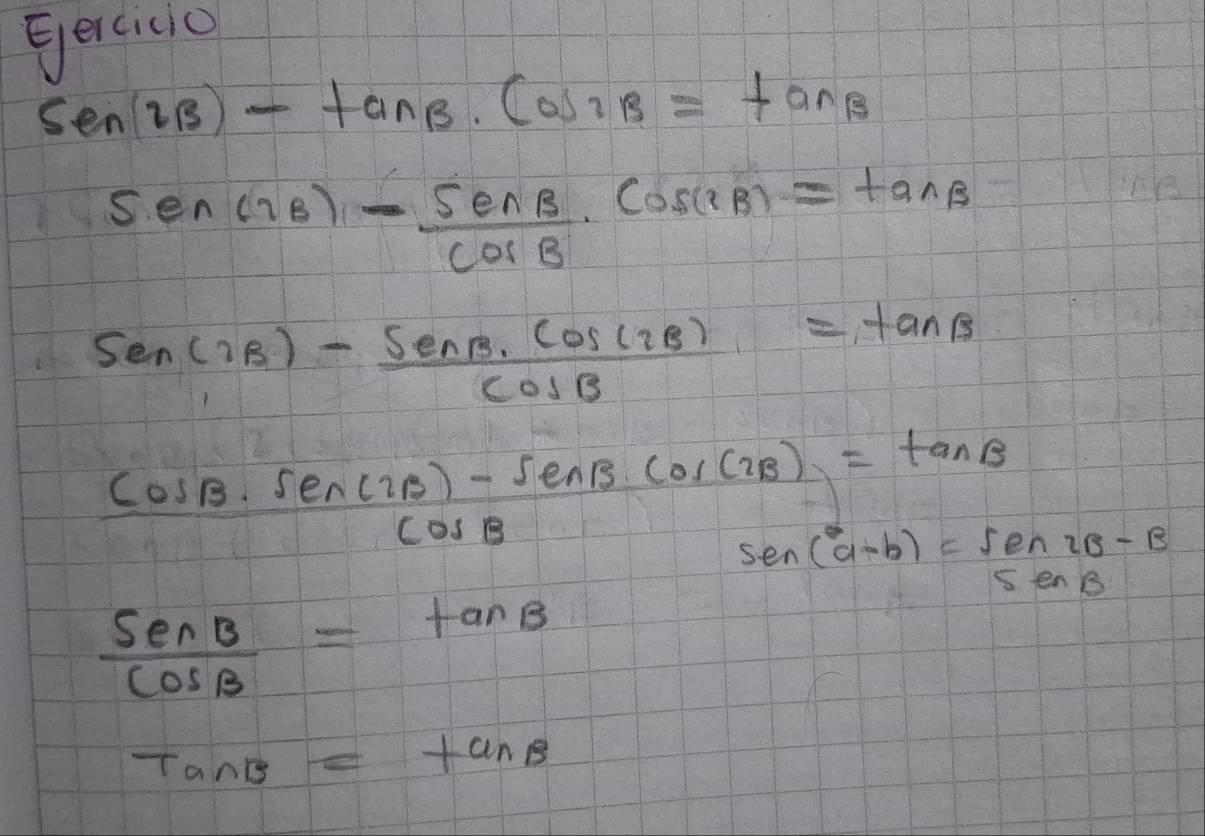 Ejercicio
Sen(2B) - tanB . Cos2B = tanB
Sen(2B) - SenB . Cos(2B) = tanB
CosB
Sen(2B) - SenB . Cos(2B) = tanB
CosB
CosB . Sen(2B) - SenB Cos(2B) = tanB
CosB
Sen(a-b) = Sen 2B - B
SenB
SenB = tanB
CosB
TanB = tanB